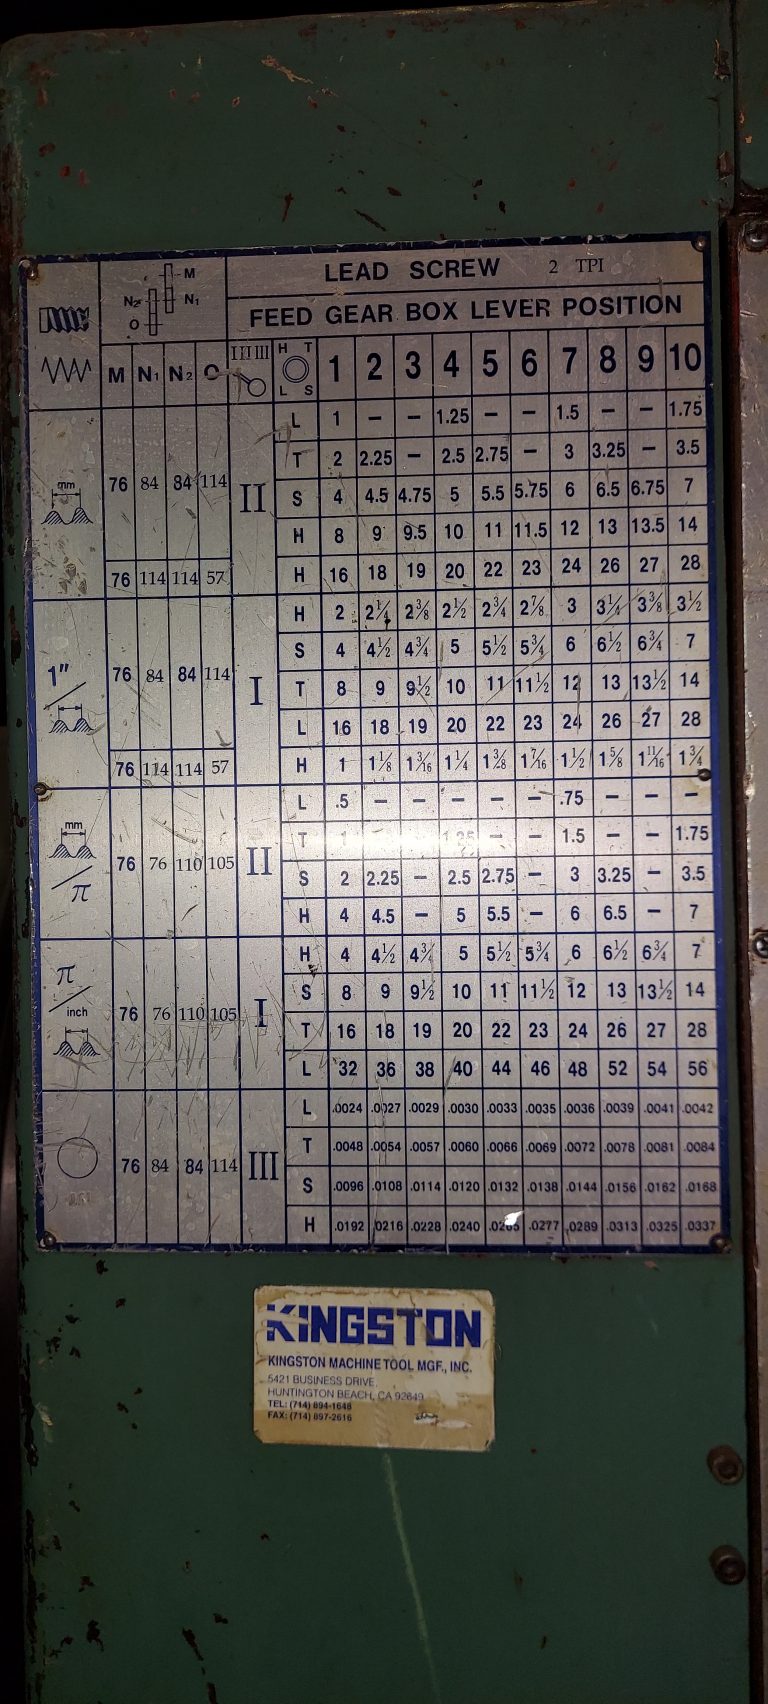 LEAD SCREW 2 TPI
M
N2 N1
O
FEED GEAR BOX LEVER POSITION
M N1 N2 O I II III H T L S 1 2 3 4 5 6 7 8 9 10
L 1 – – 1.25 – – 1.5 – – 1.75
T 2 2.25 – 2.5 2.75 – 3 3.25 – 3.5
mm 76 84 84 114 II S 4 4.5 4.75 5 5.5 5.75 6 6.5 6.75 7
H 8 9 9.5 10 11 11.5 12 13 13.5 14
76 114 114 57 H 16 18 19 20 22 23 24 26 27 28
H 2 2¼ 2⅜ 2½ 2¾ 2⅞ 3 3¼ 3⅜ 3½
S 4 4½ 4¾ 5 5½ 5¾ 6 6½ 6¾ 7
1" 76 84 84 114 I T 8 9 9½ 10 11 11½ 12 13 13½ 14
L 16 18 19 20 22 23 24 26 27 28
76 114 114 57 H 1 1⅛ 1 3/16 1¼ 1⅜ 1 7/16 1½ 1⅝ 1 11/16 1¾
L .5 – – – – – .75 – – –
T 1 1.25 – – 1.5 – – 1.75
mm π 76 76 110 105 II S 2 2.25 – 2.5 2.75 – 3 3.25 – 3.5
H 4 4.5 – 5 5.5 – 6 6.5 – 7
H 4 4½ 4¾ 5 5½ 5¾ 6 6½ 6¾ 7
π inch 76 76 110 105 I S 8 9 9½ 10 11 11½ 12 13 13½ 14
T 16 18 19 20 22 23 24 26 27 28
L 32 36 38 40 44 46 48 52 54 56
L .0024 .0027 .0029 .0030 .0033 .0035 .0036 .0039 .0041 .0042
T .0048 .0054 .0057 .0060 .0066 .0069 .0072 .0078 .0081 .0084
76 84 84 114 III S .0096 .0108 .0114 .0120 .0132 .0138 .0144 .0156 .0162 .0168
H .0192 .0216 .0228 .0240 .0265 .0277 .0289 .0313 .0325 .0337
KINGSTON
KINGSTON MACHINE TOOL MGF., INC.
5421 BUSINESS DRIVE,
HUNTINGTON BEACH, CA 92649
TEL: (714) 894-1648
FAX: (714) 897-2616